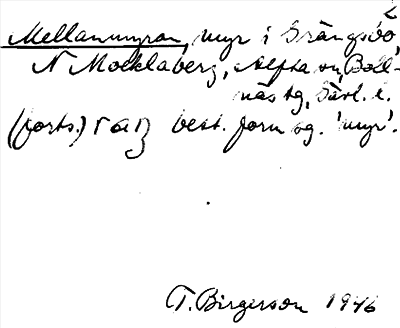 2
Mellanmyran, myr i Grängsbo,
N Mocklaberg, Alfta sn, Boll-
näs tg, Gävl. l.
(forts.) best. form sg. 'myr'.
T. Birgerson 1946